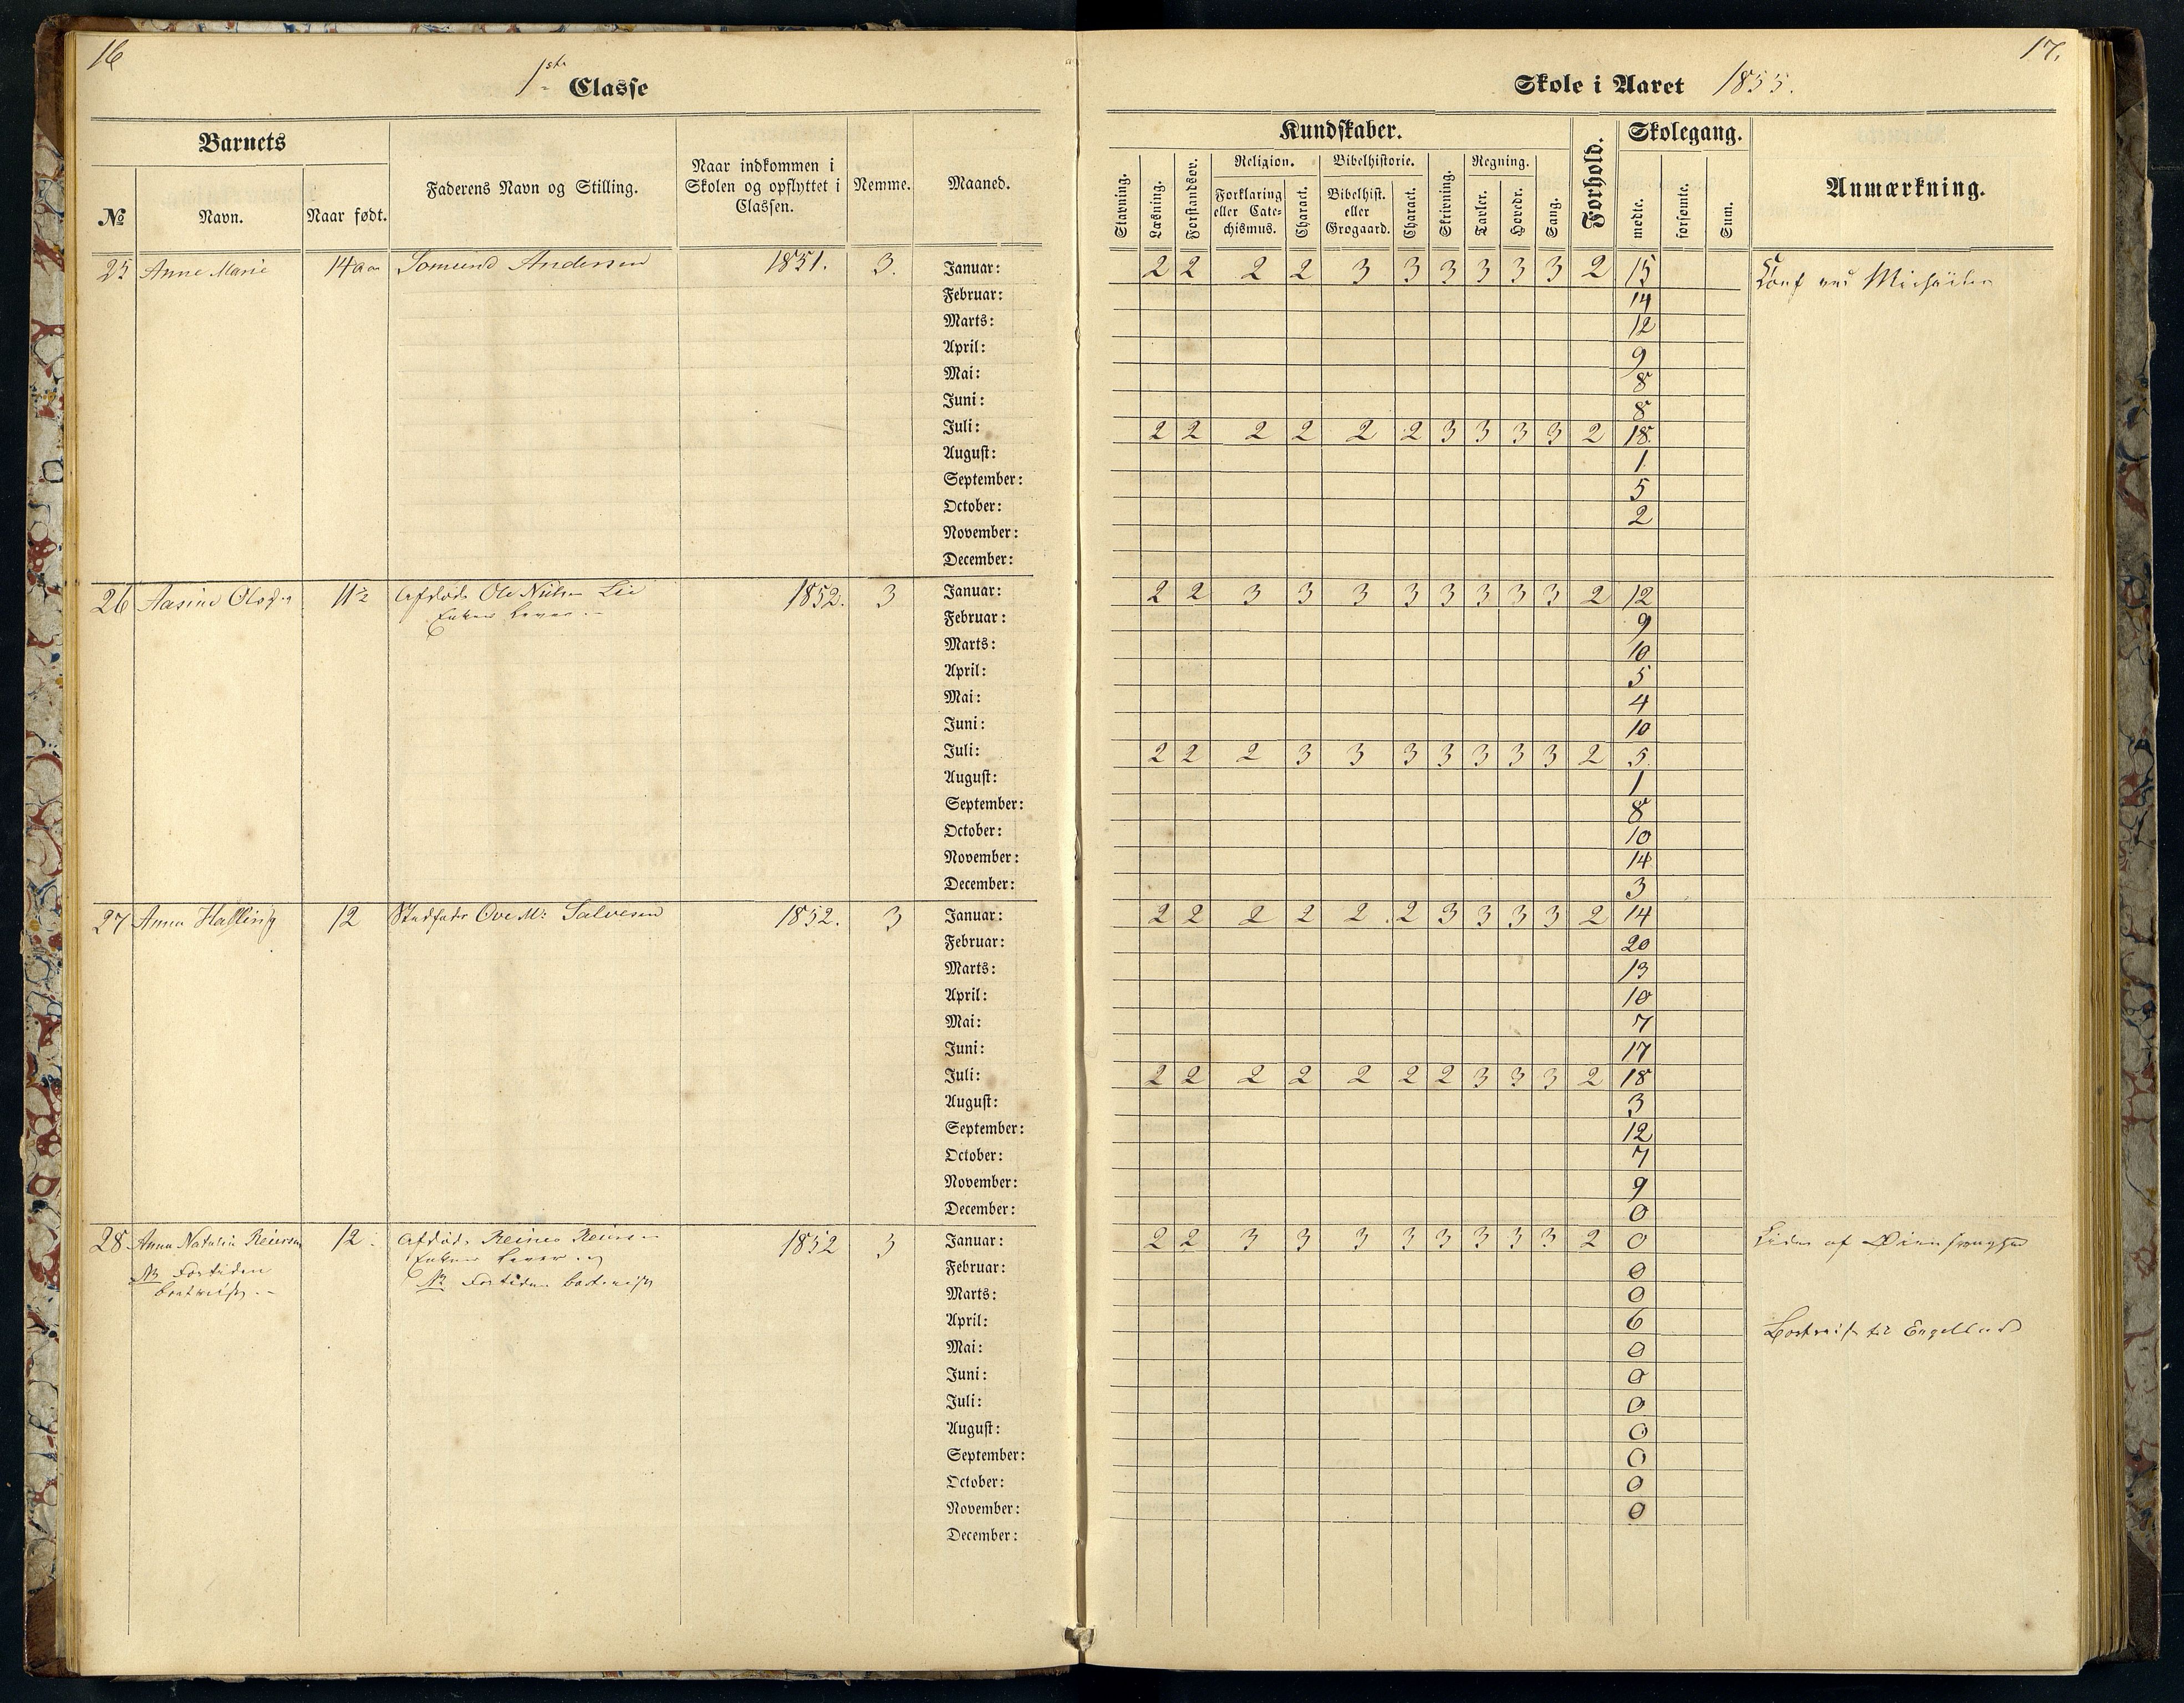 16
1ste Classe
Barnets
№ Navn. Naar født. Faderens Navn og Stilling. Naar indkommen i Skolen og opflyttet i Classen. Nemme. Maaned.
25 Anne Marie 14 Aar Tomund Andersen 1851. 3.
Januar:
Februar:
Marts:
April:
Mai:
Juni:
Juli:
August:
September:
October:
November:
December:
26 Aasine Olsdr 11½ Afdøde Ole Nielsen Lie 1852. 3
Enken lever
Januar:
Februar:
Marts:
April:
Mai:
Juni:
Juli:
August:
September:
October:
November:
December:
27 Anna Halling 12 Stedfader Ove M: Salvesen 1852. 3
Januar:
Februar:
Marts:
April:
Mai:
Juni:
Juli:
August:
September:
October:
November:
December:
28 Anna Natalia Reiersen 12 Afdøde Reiersen 1852 3
Enken lever
NB Fortiden bortreist
NB Fortiden bortreist
Januar:
Februar:
Marts:
April:
Mai:
Juni:
Juli:
August:
September:
October:
November:
December:
17.
Skole i Aaret 1855.
Kundskaber. Forhold. Skolegang. Anmærkning.
Religion. Bibelhistorie. Regning.
Stavning. Læsning. Forstandsøv. Forklaring eller Catechismus. Charact. Bibelhist. eller Grøgaard. Charact. Skrivning. Tavler. Hovedr. Sang. mødte. forsømte. Sum.
2 2 2 2 3 3 3 3 3 3 2 15 Conf ved Michaeli
14
12
9
8
8
2 2 2 2 2 2 3 3 3 3 2 18
1
5
2
2 2 3 3 3 3 3 3 3 3 2 12
9
10
5
4
10
2 2 2 3 3 3 3 3 3 3 2 5
1
8
10
14
3
2 2 2 2 2 2 3 3 3 3 2 14
20
13
10
7
17
2 2 2 2 2 2 2 3 3 3 2 18
3
12
7
9
0
2 2 3 3 3 3 3 3 3 3 2 0 Lider af Øiensvaghed
0
0
6 Bortreist til Engelland
0
0
0
0
0
0
0